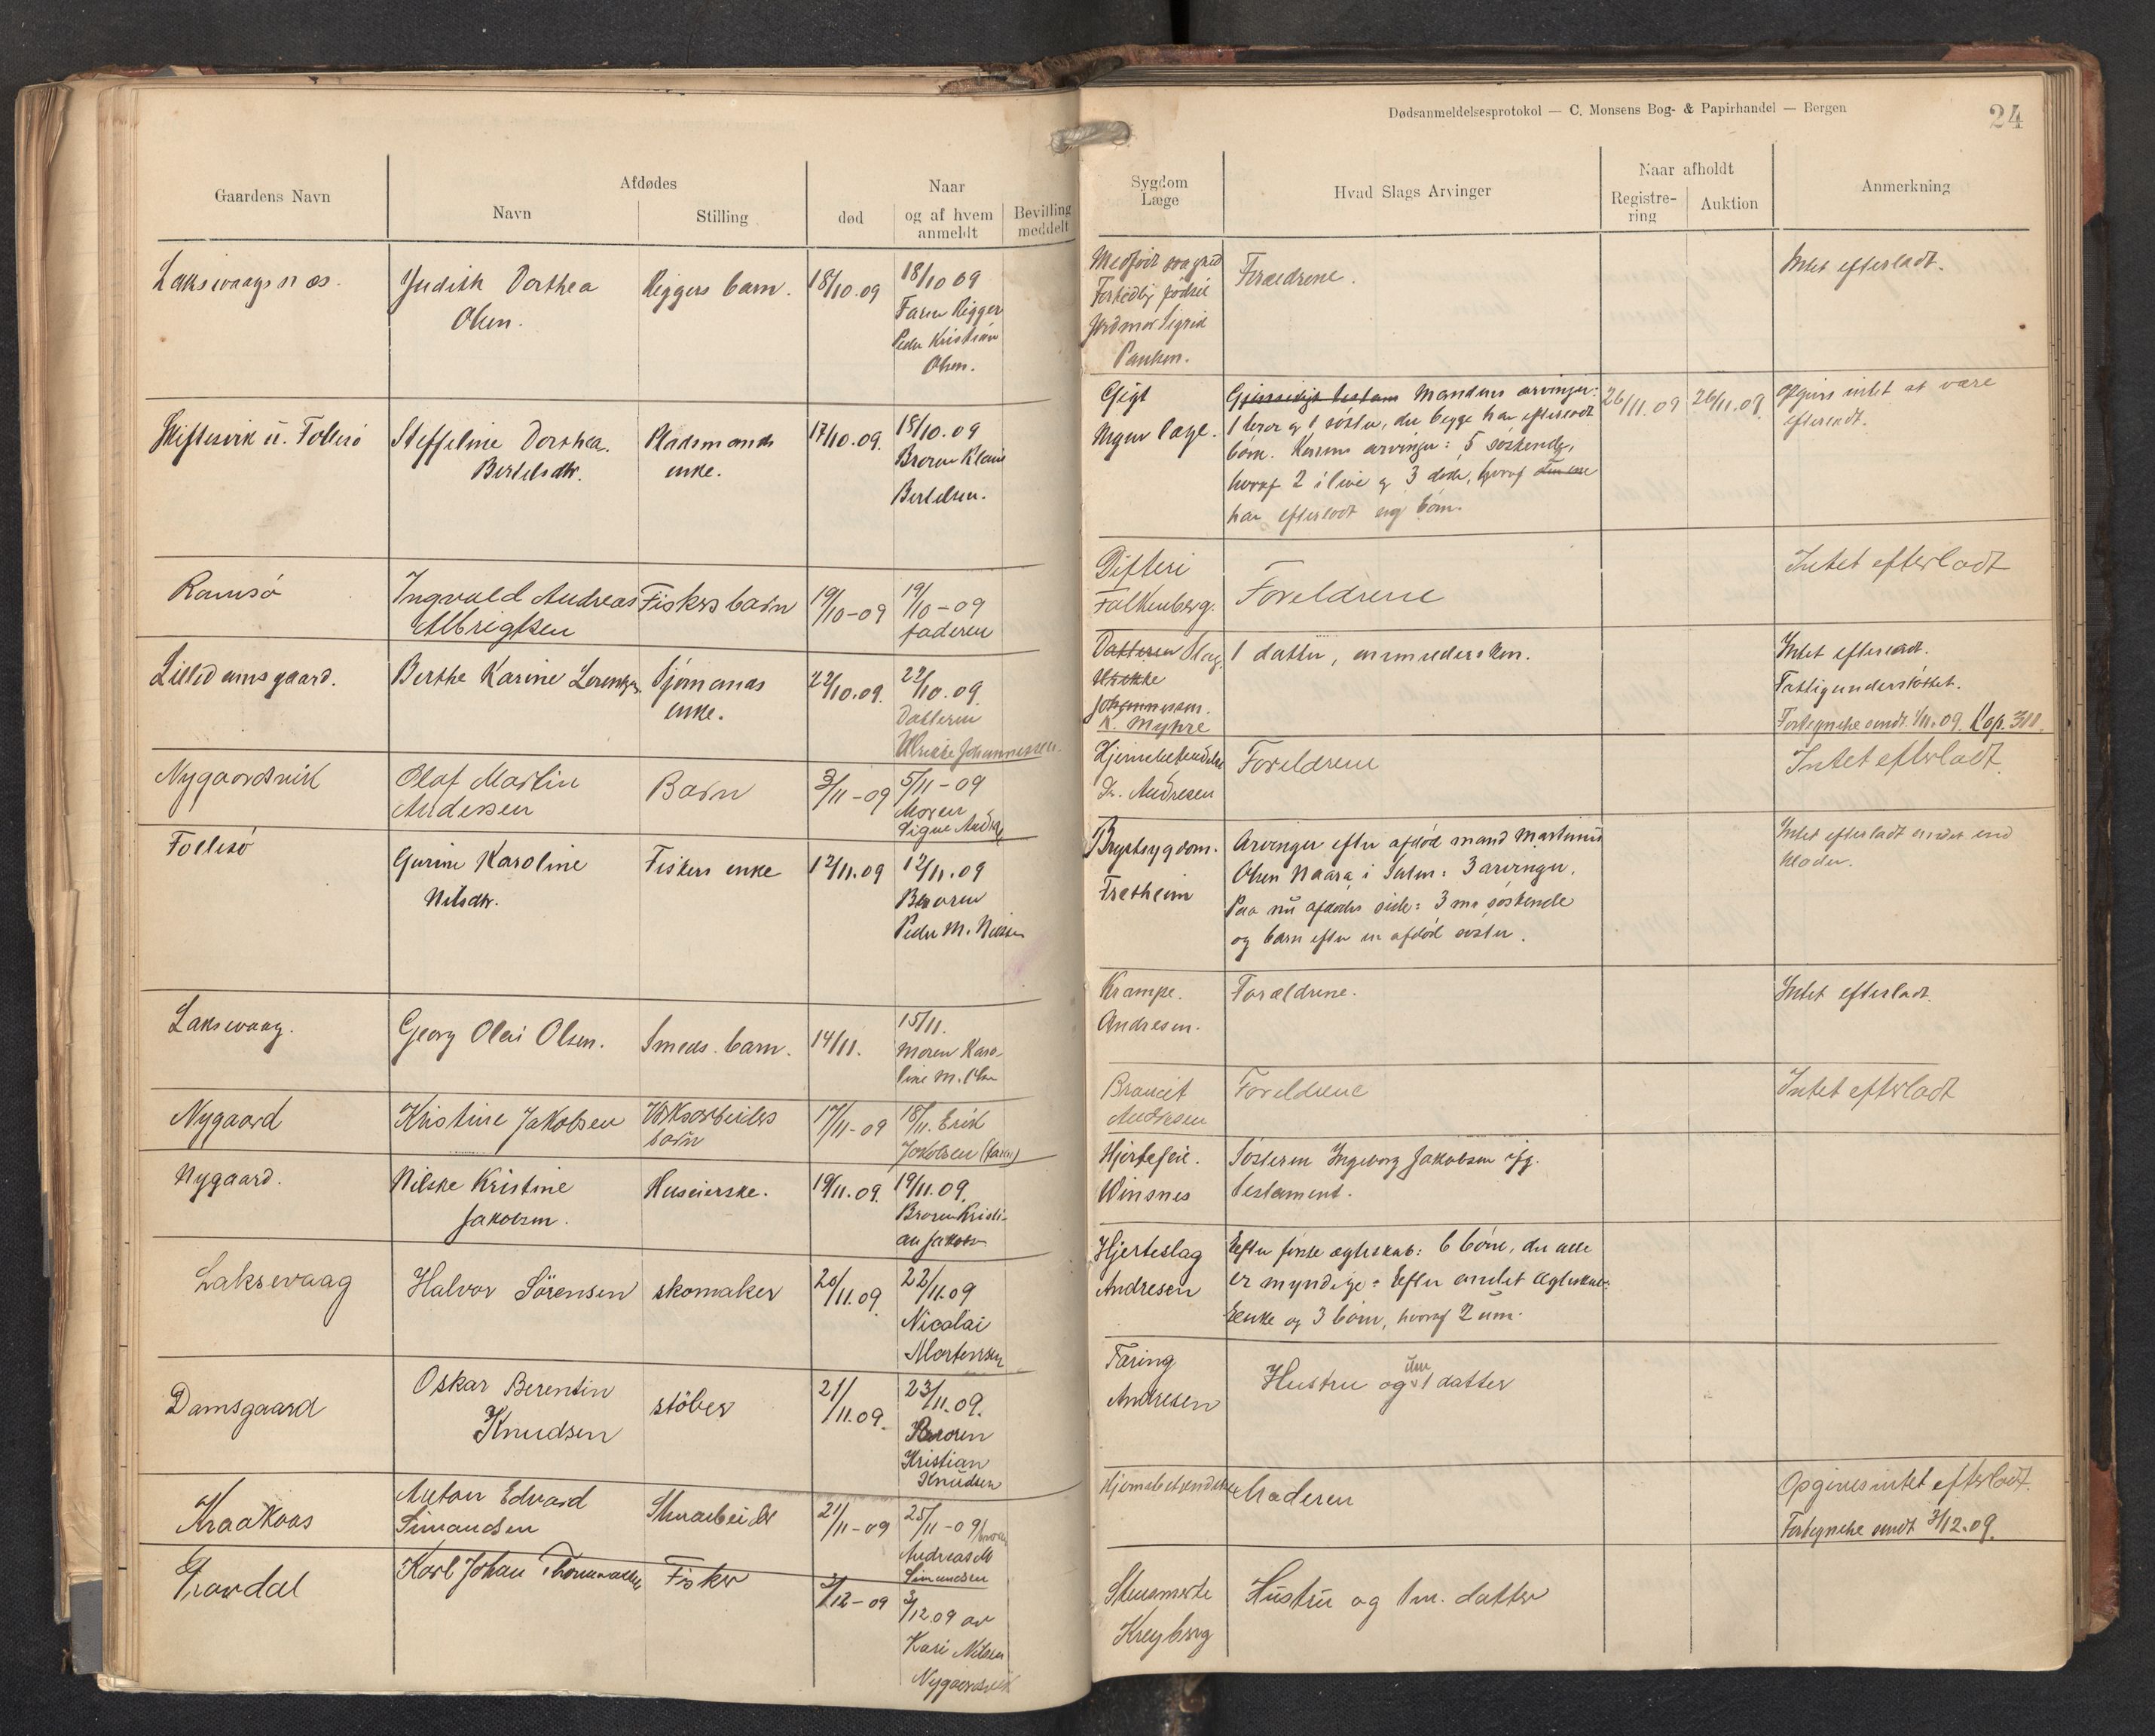 Dødsanmeldelsesprotokol — C. Monsens Bog- & Papirhandel — Bergen
24
Gaardens Navn
Afdødes
Navn
Stilling
død
Naar
og af hvem
anmeldt
Bevilling
meddelt
Sygdom
Læge
Hvad Slags Arvinger
Naar afholdt
Registre-
ring
Auktion
Anmerkning
Laksevaagsnæs.
Judith Dorthea
Olsen.
Riggers barn.
18/10.09
18/10 09
Faren Rigger
Peder Kristian
Olsen.
Medfødt svaghed
Fortidlig fødsel
Jordmor Sigrid
Paulsen.
Forældrene.
Intet efterladt.
Skiftesvik u. Follesø
Steffeline Dorthea
Bertelsdtr.
Pladsmands
enke.
17/10.09.
18/10.09
Broren Klaus
Bertelsen.
Gigt
Ingen læge.
Gjensidigt testam Mandens arvinger:
1 bror og 1 søster, der begge har efterladt
børn. Konens arvinger: 5 søskende,
hvoraf 2 i live og 3 døde, hvoraf den ene
har efterladt sig børn.
26/11.09
26/11.09.
Opgives intet at være
efterladt.
Ramsø
Ingvald Andreas
Albrigtsen
Fiskers barn
19/10-09
19/10-09
faderen
Difteri
Falkenberg.
Foreldrene
Intet efterladt
Lilledamsgaard.
Berthe Karine Lorentzen
Sjømands
enke.
22/10.09.
22/10.09.
Datteren
Ulrikke Johannessen.
Datteren Slag.
Ulrikke
Johannessen.
K. Myhre
1 datter, anmeldersken.
Intet efterladt.
Fattigunderstøttet.
Forkynelse sendt 1/11.09. Kop. 388.
Nygaardsvik
Olaf Martin
Andersen
Barn
3/11-09
5/11-09
Moren
Signe Andersen
Hjernebetendelse
Kr. Andresen
Foreldrene
Intet efterladt.
Follesø
Gurine Karoline
Nilsdtr.
Fiskers enke
12/11.09
12/11.09
Broren
Peder M. Nilssen
Brystsygdom.
Fretheim
Arvinger efter afdød mand Martinus
Olsen Naara i Sulen: 3 arvinger.
Paa nu afdødes side: 3 m. søskende
og barn efter en afdød søster.
Intet efterladt andet end
klæder.
Laksevaag.
Georg Olai Olsen.
Smeds barn.
14/11.
15/11.
Moren Karo-
line M. Olsen
Krampe.
Andresen.
Forældrene.
Intet efterladt.
Nygaard
Kristine Jakobsen
Verksarbeiders
barn
17/11-09
18/11. Erik
Jakobsen (faren)
Broncit
Andresen
Foreldrene
Intet efterladt
Nygaard.
Nilske Kristine
Jakobsen.
Huseierske.
19/11.09.
19/11.09.
Broren Kristi-
an Jakobsen
Hjertefeil.
Winsnes
Søsteren Ingeborg Jakobsen ifg.
testament.
Laksevaag
Halvor Sörensen
skomaker
20/11.09.
22/11.09
Nicolai
Mortensen
Hjerteslag
Andresen
Efter første ægteskab: 6 børn, der alle
er myndige. Efter andet ægteskab:
Enke og 3 børn, hvoraf 2 um.
Damsgaard
Oskar Berentin
Knudsen
støber
21/11.09.
23/11.09.
Broren
Kristian
Knudsen
Tæring
Andresen
Hustru og 1 um datter
Kraakaas
Anton Edvard
Simonsen
Stenarbeider
21/11-09
25/11-09 broren
Andreas M
Simonsen
Hjernebetendelse
Moderen
Opgives intet efterladt.
Forkynelse sendt 3/12.09.
Gravdal
Karl Johan
Fisker
2/12-09
3/12.09 av
Kari Nilsen
Nygaardsvik
Kreyberg
Hustru og 1 m. datter